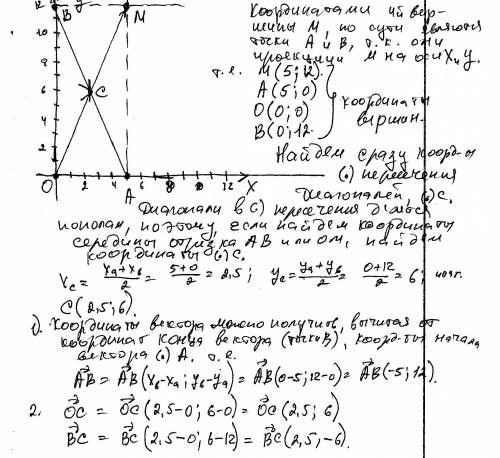 12 B y M
10
8
6 C
4
2
O 2 4 6 8 10 12 X
A
Координатами вер-
шины М, по сути являются
точки А и В, т.к. они
проекции М на оси Х и У.
т.е. М(5;12)
А(5;0)
О(0;0)
В(0;12)
координаты
вершин.
Найдем сразу коорд-ы
(.) пересечения
диагоналей, (.)С.
Диагонали в (.) пересечения делятся
пополам, поэтому, если найдем координаты
середины отрезка АВ или ОМ, найдем
координаты (.)С.
Xc = (xa+xb)/2 = (5+0)/2 = 2,5; yc = (ya+yb)/2 = (0+12)/2 = 6;
С(2,5; 6).
1) Координаты вектора можно получить, вычитая от
координат конца вектора (точки В), коорд-ты начала
вектора (.) А. т.е.
AB = AB(xb-xa; yb-ya) = AB(0-5; 12-0) = AB(-5; 12).
2. OC = OC(2,5-0; 6-0) = OC(2,5; 6)
BC = BC(2,5-0; 6-12) = BC(2,5; -6).